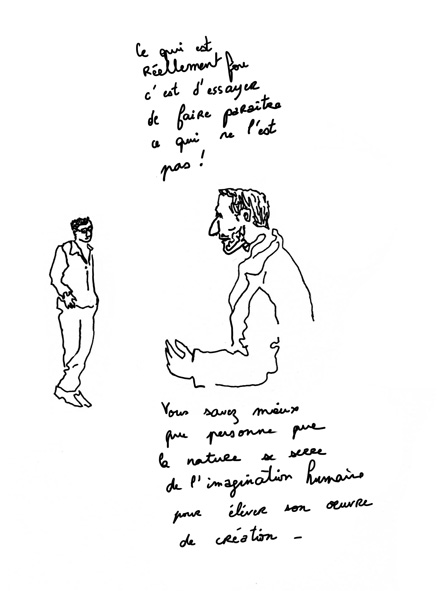 Ce qui est
Réellement fou
c'est d'essayer
de faire paraître
ce qui ne l'est
pas !
Vous savez mieux
que personne que
la nature se serre
de l'imagination humaine
pour éléver son oeuvre
de création -